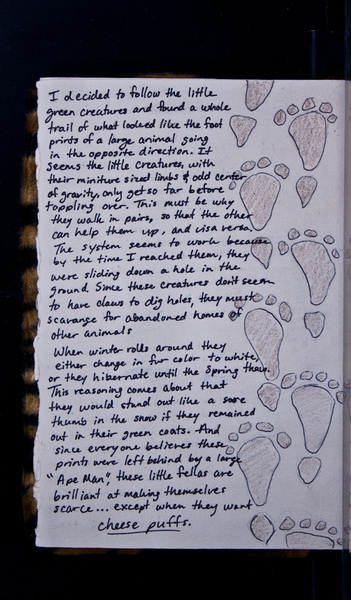 I decided to follow the little
green creatures and found a whole
trail of what looked like the foot
prints of a large animal going
in the opposite direction. It
seems the little creatures, with
their miniture sized limbs & odd center
of gravity, only get so far before
toppling over. This must be why
they walk in pairs, so that the other
can help them up, and visa versa.
The system seems to work because
by the time I reached them, they
were sliding down a hole in the
ground. Since these creatures don't seem
to have claws to dig holes, they must
scavange for abandoned homes of
other animals
When winter rolls around they
either change in fur color to white,
or they hibernate until the Spring thaw.
This reasoning comes about that
they would stand out like a sore
thumb in the snow if they remained
out in their green coats. And
since everyone believes these
prints were left behind by a large
"Ape Man", these little fellas are
brilliant at making themselves
scarce... except when they want
cheese puffs.